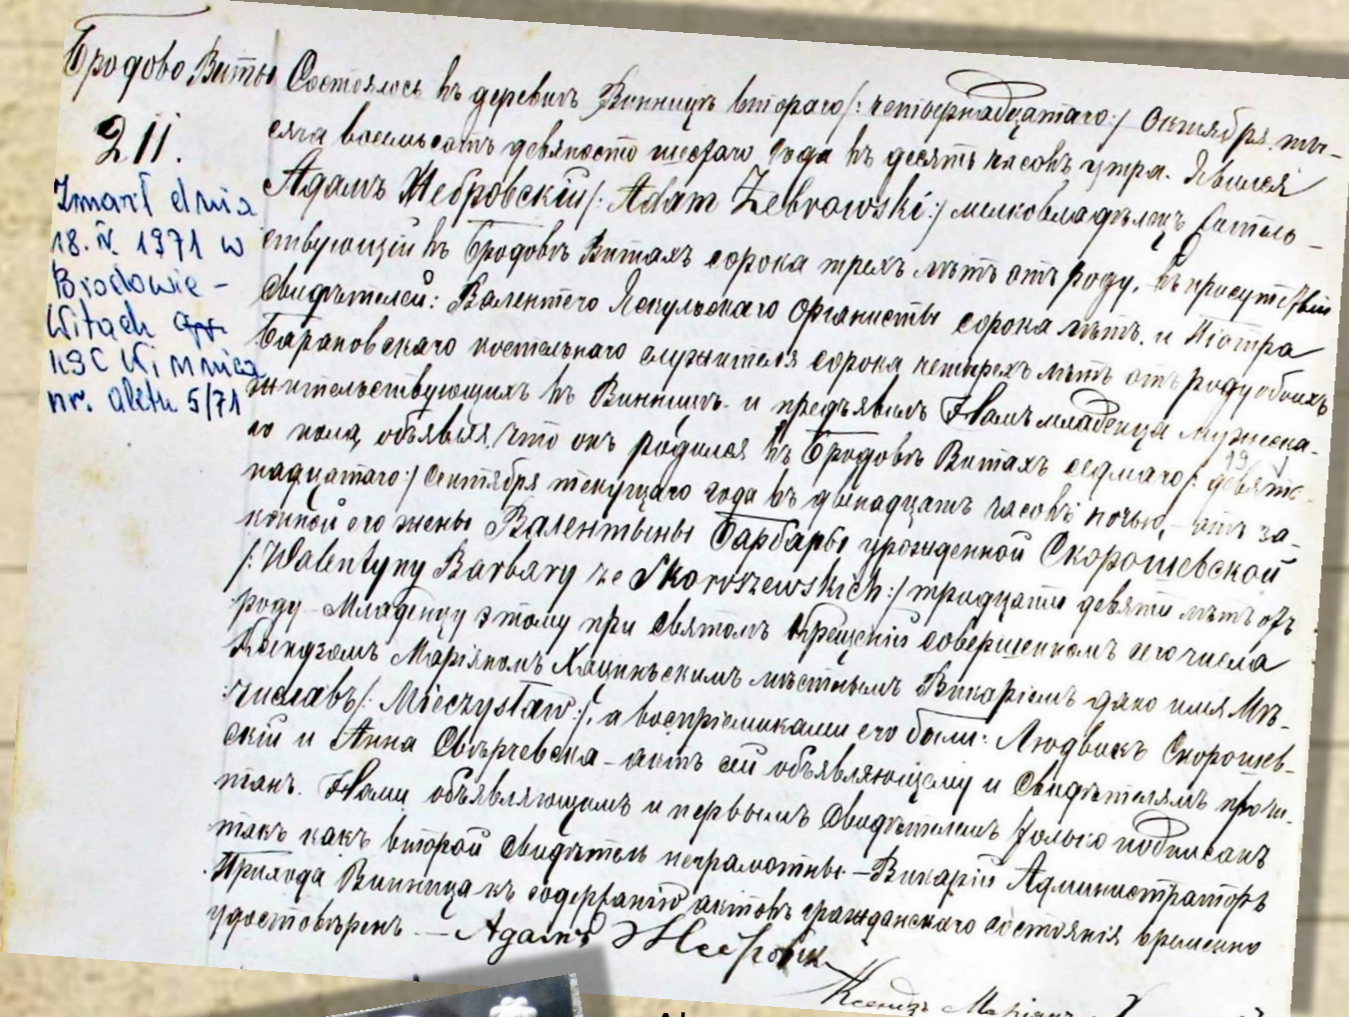 Бродово Виты
211.
Zmarł dnia
18. IV. 1971 w
Brodowie -
Witach
USC Winnica
nr. aktu 5/71
Состоялось въ деревнѣ Винницѣ втораго /: четырнадцатаго :/ Октября ты-
сяча восемьсотъ девяносто шестаго года въ десять часовъ утра. Явился
Адамъ Жебровскій /: Adam Żebrowski :/ мелковладѣлецъ житель-
ствующій въ Бродовѣ Витахъ сорока трехъ лѣтъ отъ роду, въ присутствіи
свидѣтелей: Валентего Органисты сорока лѣтъ, и Піотра
Барановскаго костельнаго служителя сорока четырехъ лѣтъ отъ роду обоихъ
жительствующихъ въ Винницѣ и предъявилъ Намъ младенца мужеска-
го пола, объявляя, что онъ родился въ Бродовѣ Витахъ седмаго /: девят-
19
надцатаго :/ Сентября текущаго года въ двенадцать часовъ ночью, - отъ за-
конной его жены Валентыны Барбары урожденной Скорошевской
/: Walentyny Barbary ze Skoroszewskich :/ тридцати девяти лѣтъ отъ
роду Младенцу этому при Святомъ Крещеніи совершенномъ сего числа
Ксендзомъ Маріяномъ мѣстнымъ Викаріемъ дано имя Мѣ-
числавъ /: Mieczysław :/, а воспріемниками его были: Людвикъ Скорошев-
скій и Анна Свѣрчевска - актъ сей объявляющему и Свидѣтелямъ прочи-
танъ. Нами объявляющимъ и первымъ Свидѣтелемъ только подписанъ
такъ какъ второй Свидѣтель неграмотны - Викарій Администраторъ
Прихода Винница къ содержанію актовъ гражданскаго состоянія временно
удостовѣренъ - Адамъ
Ксендзъ Маріянъ